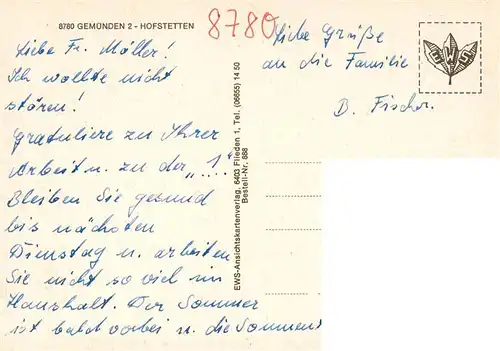 8780 GEMÜNDEN 2 - HOFSTETTEN
8780
Liebe Fr. Möller!
Ich wollte nicht
stören!
Gratuliere zu Ihrer
Arbeit u. zu der „1."
Bleiben Sie gesund
bis nächsten
Dienstag u. arbeiten
Sie nicht so viel im
Haushalt. Der Sommer
ist bald vorbei u. die Sommers
EWS-Ansichtskartenverlag, 6403 Flieden 1, Tel. (06655) 14 50
Bestell-Nr. 888
Liebe Grüße
an die Familie
B. Fischer.
EWS